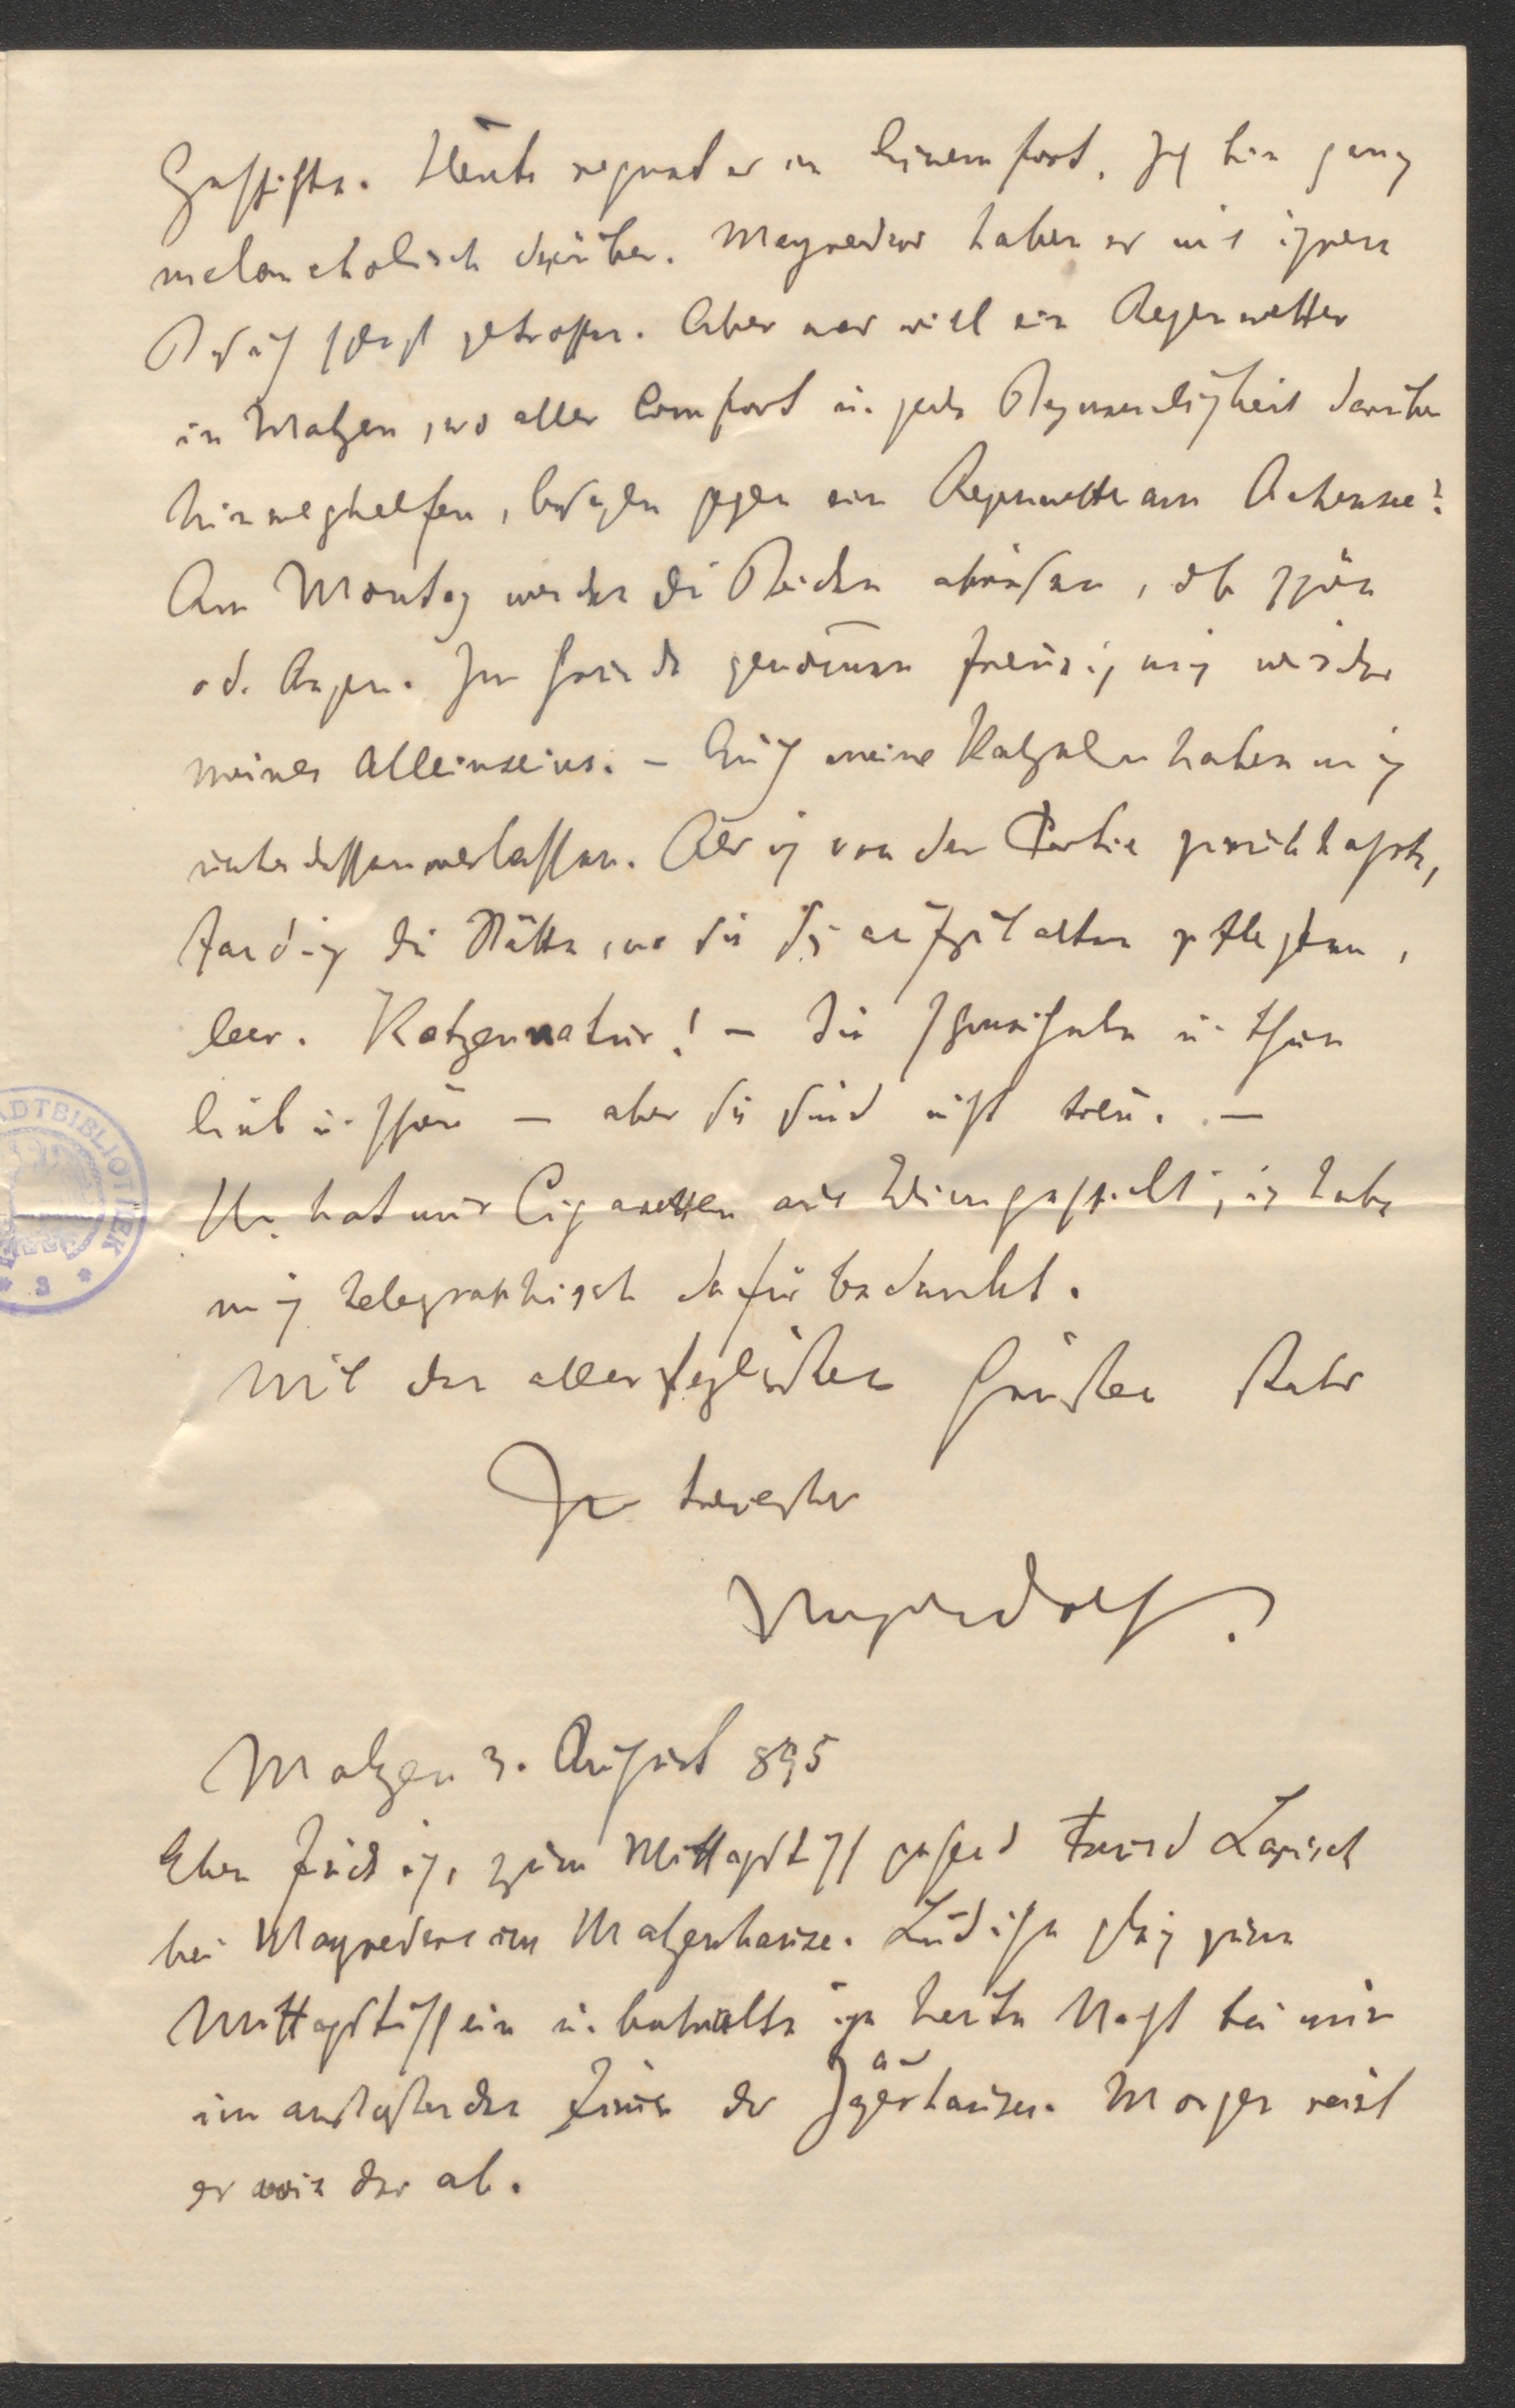 Geschichte. Heute regnet es in Einem fort. Ich bin ganz
melancholisch drüber. Mayreders haben es mit ihrem
Besuch schlecht getroffen. Aber was will ein Regenwetter
in Matzen, wo aller Comfort u. jede Bequemlichkeit darüber
hinweghelfen, besagen gegen ein Regenwetter am Achensee?
Am Montag werden die Beiden abreisen, ob schön
od. Regen. Im Grunde genommen freue ich mich wieder
meines Alleinseins. – Auch meine Katzerln haben mich
unterdessen verlassen. Als ich von der Partie zurückkehrte,
fand ich die Stätte, wo sie sich aufzuhalten pflegten,
leer. Katzennatur! – Sie schmeicheln u. thun
lieb u. schön – aber sie sind nicht treu. –
Hr. hat mir Cigaretten aus Wien geschickt; ich habe
mich telegraphisch dafür bedankt.
Mit den allerherzlichsten Grüßen stets
Ihr treuester
Matzen 3. August 895
Eben fand ich, zum Mittagstisch gehend Freund
bei Mayreders im Matzenhause. Lud ihn gleich zum
Mittagstisch ein u. behalte ihn heute Nacht bei mir
im anstoßenden Zimmer des Jägerhauses. Morgen reist
er wieder ab.
STADTBIBLIOTHEK